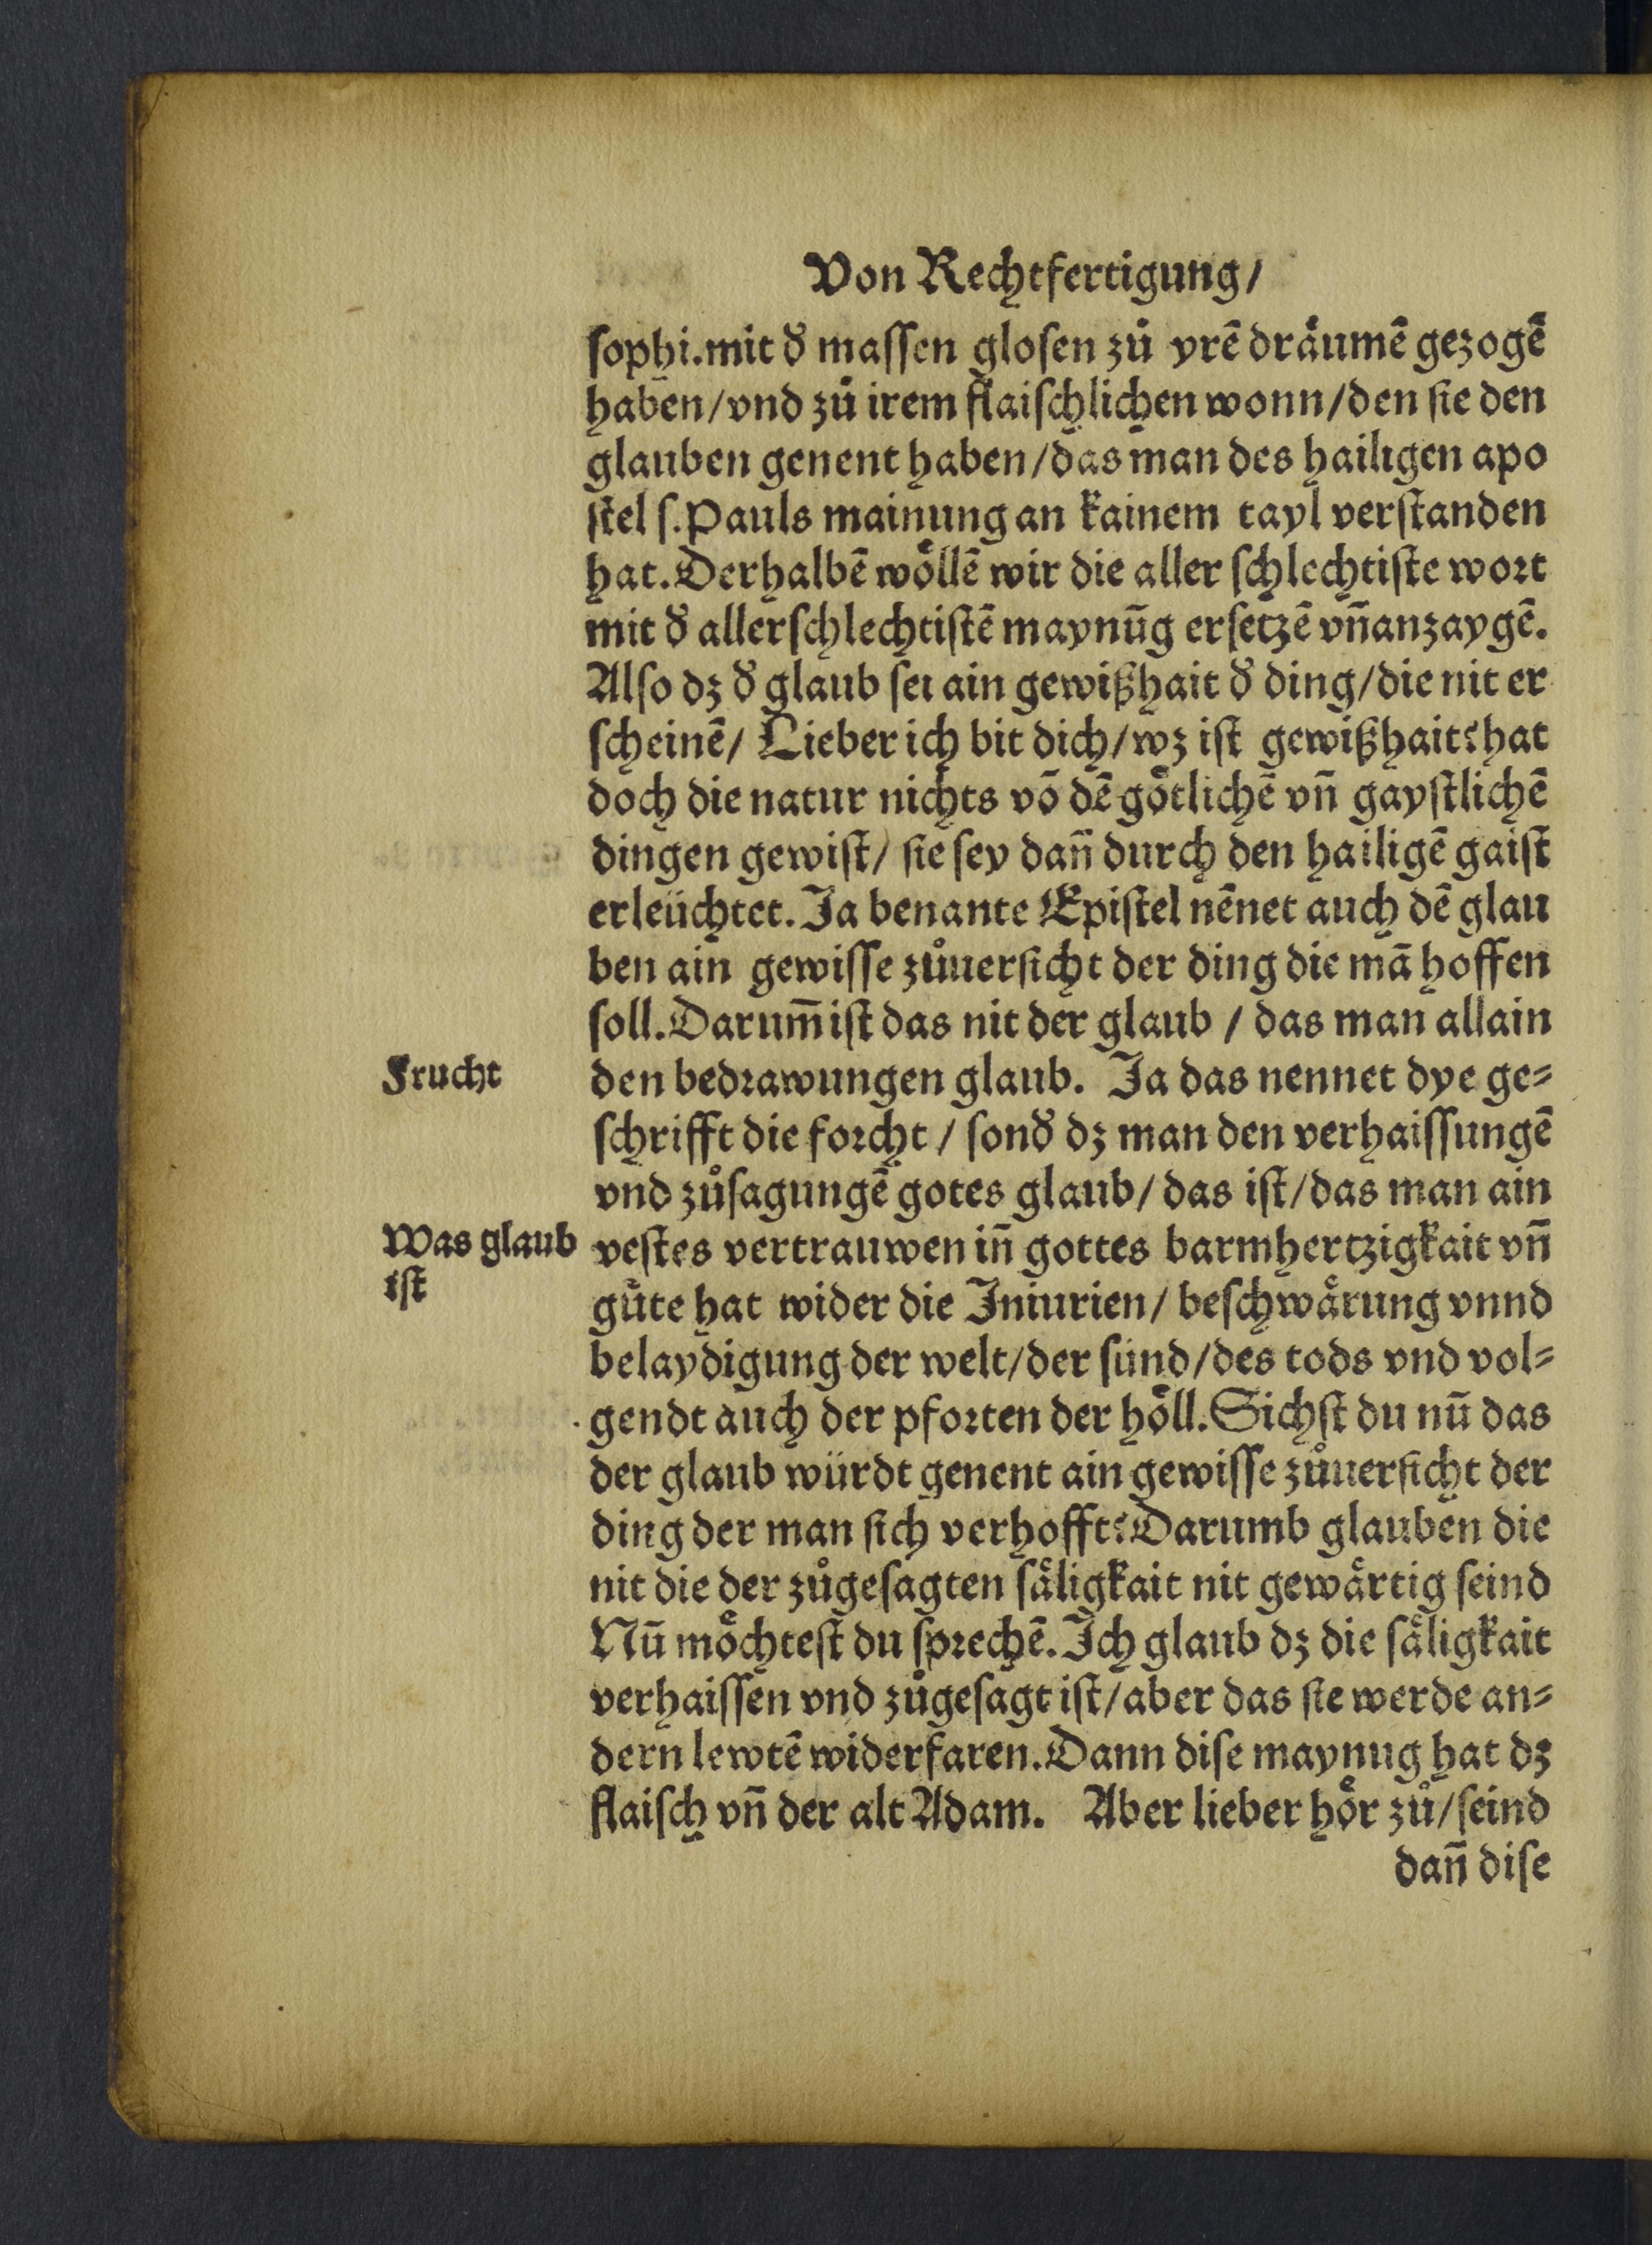 Von Rechtfertigung/
ſophi. mit d̄ maſſen gloſen zů yrē dråumē gezogē
haben/vnd zů irem flaiſchlichen wonn/den ſie den
glauben genent haben/das man des hailigen apo
ſtel ſ. Pauls mainung an kainem tayl verſtanden
hat. Derhalbē wöllē wir die aller ſchlechtiſte wort
mit d̄ allerſchlechtiſtē maynūg erſetzē vn̄ anzaygē.
Alſo dz d̄ glaub ſei ain gewißhait d̄ ding/die nit er
ſcheinē/ Lieber ich bit dich/wz iſt gewißhait? hat
doch die natur nichts vō dē götlichē vn̄ gayſtlichē
dingen gewiſt/ ſie ſey dan̄ durch den hailigē gaiſt
erleüchtet. Ja benante Epiſtel nēnet auch dē glau
ben ain gewiſſe zůuerſicht der ding die mā hoffen
ſoll. Darum̄ iſt das nit der glaub / das man allain
Frucht
den bedrawungen glaub. Ja das nennet dye ge⸗
ſchrifft die forcht / ſond̄ dz man den verhaiſſungē
vnd zůſagungē gotes glaub/ das iſt/das man ain
Was glaub
iſt
veſtes vertrauwen in̄ gottes barmhertzigkait vn̄
gůte hat wider die Iniurien/ beſchwårung vnnd
belaydigung der welt/der ſünd/des tods vnd vol⸗
gendt auch der pforten der höll. Sichſt du nū das
der glaub würdt genent ain gewiſſe zůuerſicht der
ding der man ſich verhofft? Darumb glauben die
nit die der zůgeſagten ſåligkait nit gewårtig ſeind
Nū möchteſt du ſprechē. Ich glaub dz die ſåligkait
verhaiſſen vnd zůgeſagt iſt/aber das ſie werde an⸗
dern lewtē widerfaren. Dann diſe maynug hat dz
flaiſch vn̄ der alt Adam. Aber lieber hör zů/ſeind
dan̄ diſe